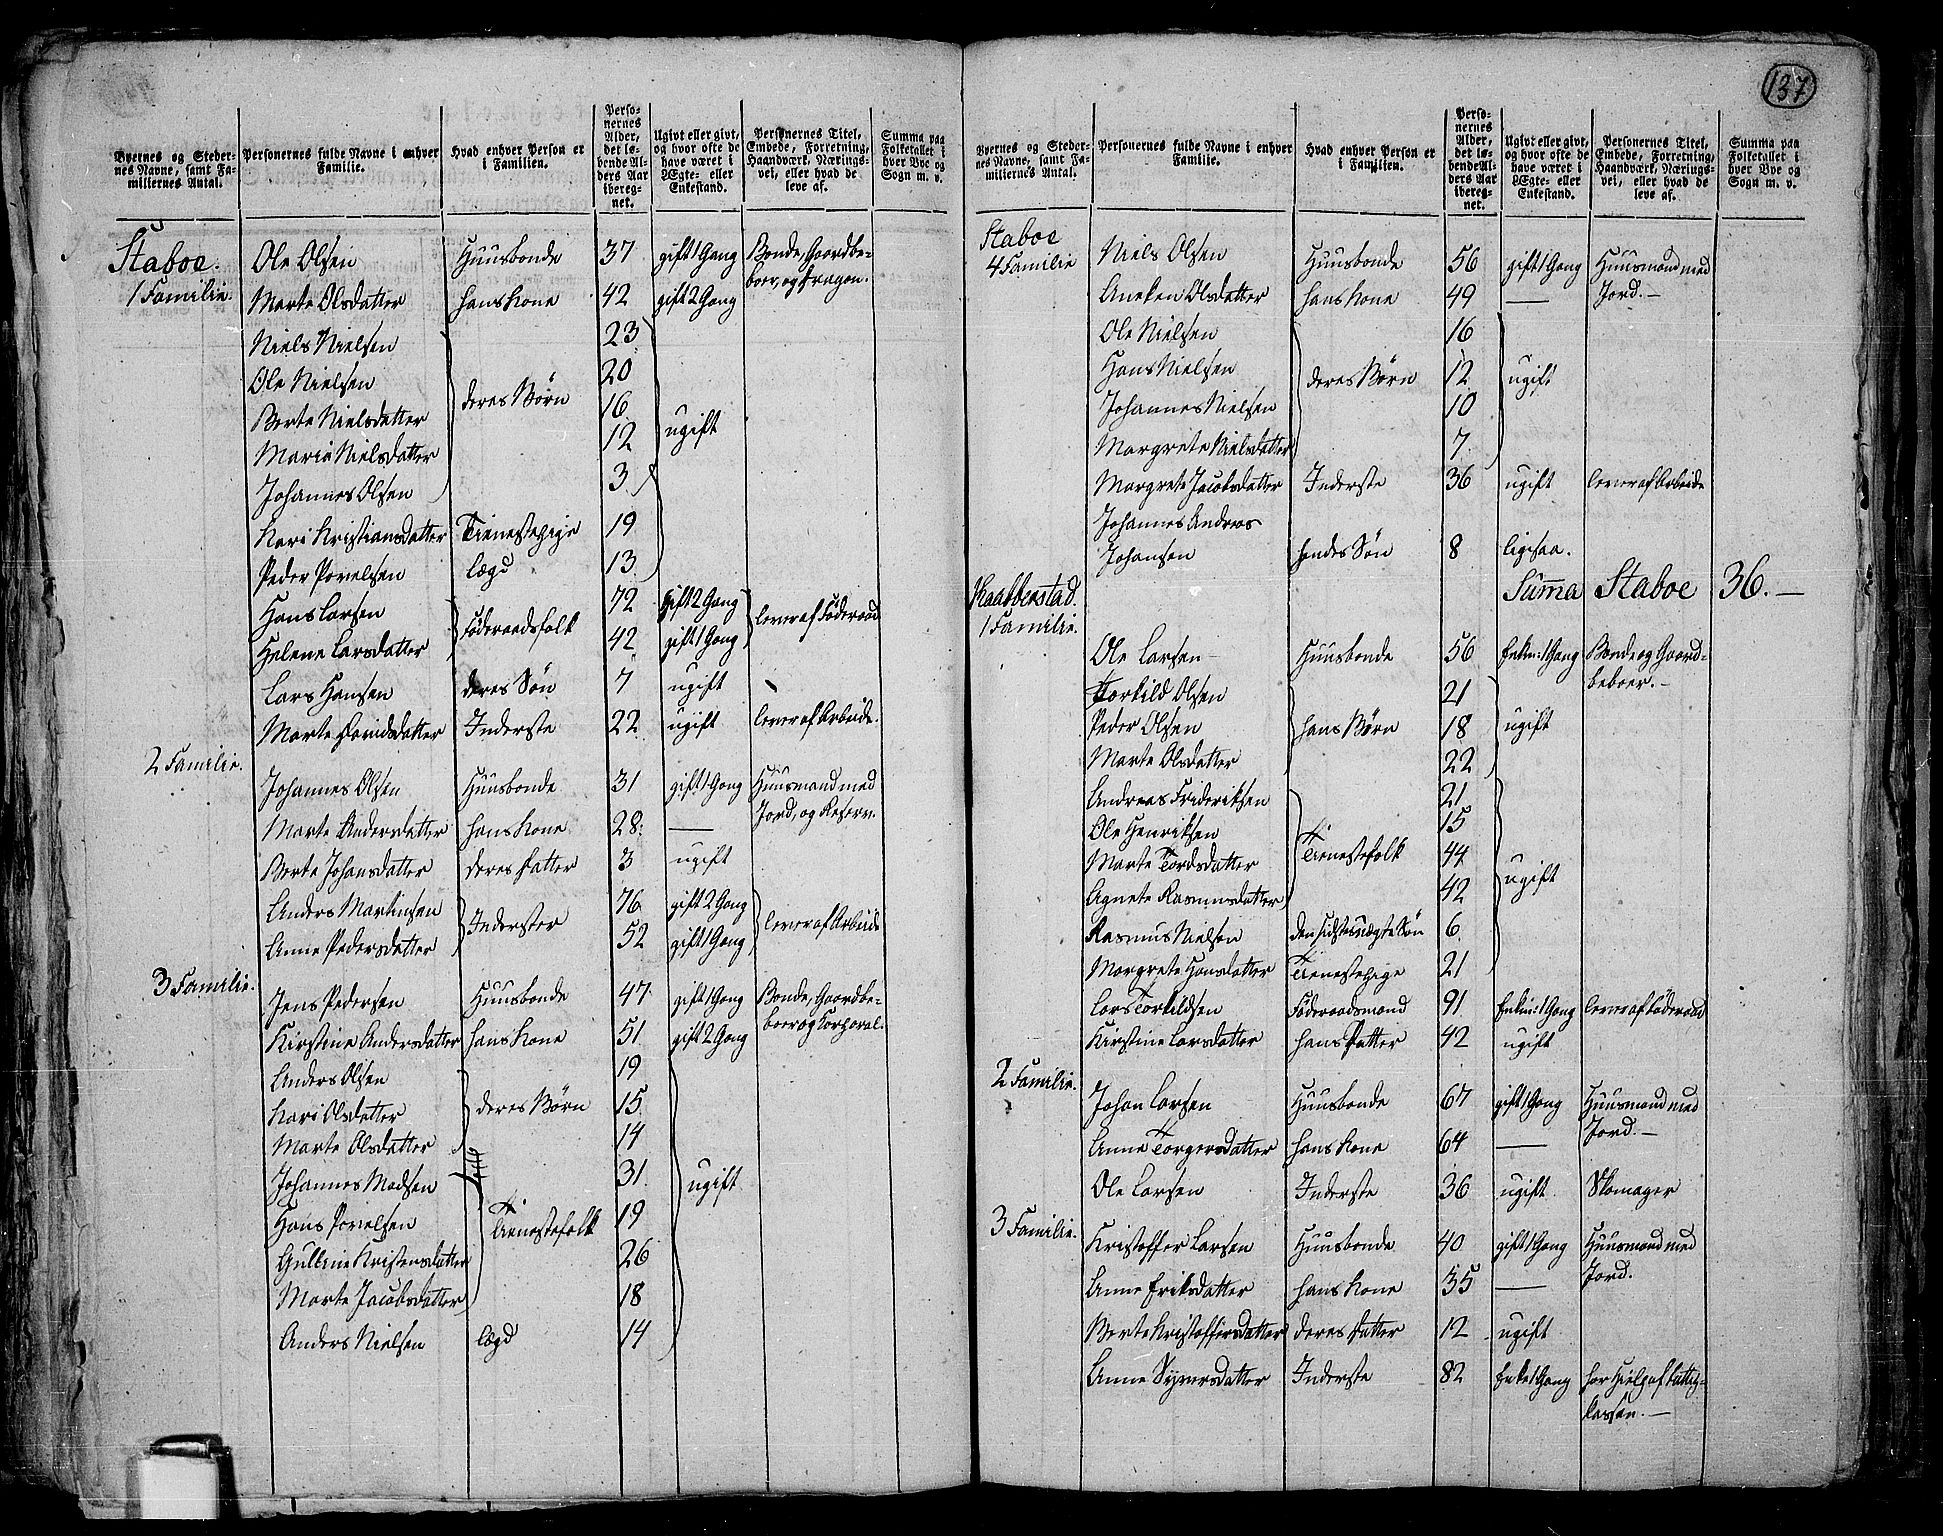 137
Byernes og Steder- nes Navne, samt Fa- miliernes Antal.
Personernes fulde Navne i enhver Familie.
Hvad enhver Person er i Familien.
Perso- nernes Alder, det lø- bende Al- ders Aar iberegnet.
Ugivt eller givt, og hvor ofte de have været i Ægte- eller Enkestand.
Personernes Titel, Embede, Forretning, Haandværk, Nærings- vei, eller hvad de leve af.
Summa paa Folketallet i hver Bye og Sogn m. v.
Staboe. Ole Olsen Huusbonde 37 gift 1 Gang Bonde, Gaardbe-
1 Familie. Marte Olsdatter hans Kone 42 gift 2 Gang boer, og Dragon.
Niels Nielsen 23
Ole Nielsen 20
Berte Nielsdatter deres Børn 16
Marie Nielsdatter 12 ugift
Johannes Olsen 3
Kari Kristiansdatter Tienestepige 19
Peder Povelsen lægd 13
Hans Larsen 72 gift 2 Gang
Helene Larsdatter Föderaadsfolk 42 gift 1 Gang lever af Föderaad
Lars Hansen deres Søn 7 ugift
Marte Davidsdatter Inderste 22 ugift lever af Arbeide.
2 Familie.
Johannes Olsen Huusbonde 31 gift 1 Gang Huusmand med
Marte Andersdatter hans Kone 28 — Jord, og Reserv.
Berte Johansdatter deres Datter 3 ugift
Anders Martinsen 76 gift 2 Gang
Anne Pedersdatter Inderster 52 gift 1 Gang lever af Arbeide
3 Familie.
Jens Pedersen Huusbonde 47 gift 1 Gang Bonde, Gaardbe-
Kirstine Andersdatter hans Kone 51 gift 2 Gang boer og Corporal.
Anders Olsen 19
Kari Olsdatter deres Børn 15
Marte Olsdatter 14
Johannes Madsen 31 ugift
Hans Povelsen Tienestefolk 19
Gulline Kristensdatter 26
Marte Jacobsdatter 18
Anders Nielsen lægd 14
Byernes og Steder- nes Navne, samt Fa- miliernes Antal.
Personernes fulde Navne i enhver Familie.
Hvad enhver Person er i Familien.
Perso- nernes Alder, det lø- bende Al- ders Aar iberegnet.
Ugivt eller givt, og hvor ofte de have været i Ægte- eller Enkestand.
Personernes Titel, Embede, Forretning, Haandværk, Nærings- vei, eller hvad de leve af.
Summa paa Folketallet i hver Bye og Sogn m. v.
Staboe
4 Familie Niels Olsen Huusbonde 56 gift 1 Gang Huusmand med
Aneken Olsdatter hans Kone 49 — Jord.—
Ole Nielsen 16
Hans Nielsen deres Børn 12 ugift
Johannes Nielsen 10
Margrete Nielsdatter 7
Margrete Jacobsdatter Inderste 36 ugift lever af Arbeide
Johannes Andreas
Johansen hendes Søn 8 ligesaa.
Summa Staboe 36.—
Kaabberstad.
1 Familie.
Ole Larsen Huusbonde 56 Enkm: 1 Gang Bonde og Gaard-
beboer.—
Torkild Olsen 21
Peder Olsen hans Børn 18 ugift
Marte Olsdatter 22
Andreas Frideriksen 21
Ole Henriksen 15
Marte Tordsdatter Tienestefolk 44
Agnete Rasmusdatter 42 ugift
Rasmus Nielsen den sidstes uægte Søn 6
Margrete Hansdatter Tienestepige 21
Lars Torkildsen Föderaadsmand 91 Enkm: 1 Gang lever af Föderaad
Kirstine Larsdatter hans Datter 42 ugift
2 Familie.
Johan Larsen Huusbonde 67 gift 1 Gang Huusmand med
Anne Torgersdatter hans Kone 64 — Jord.—
Ole Larsen Inderste 36 ugift Skomager
3 Familie.
Kristoffer Larsen Huusbonde 40 gift 1 Gang Huusmand med
Anne Eriksdatter hans Kone 35 — Jord.
Berte Kristoffersdatter deres Datter 12 ugift
Anne Syversdatter Inderste 82 Enke 1 Gang har Hielp af Fattig-
kassen.—